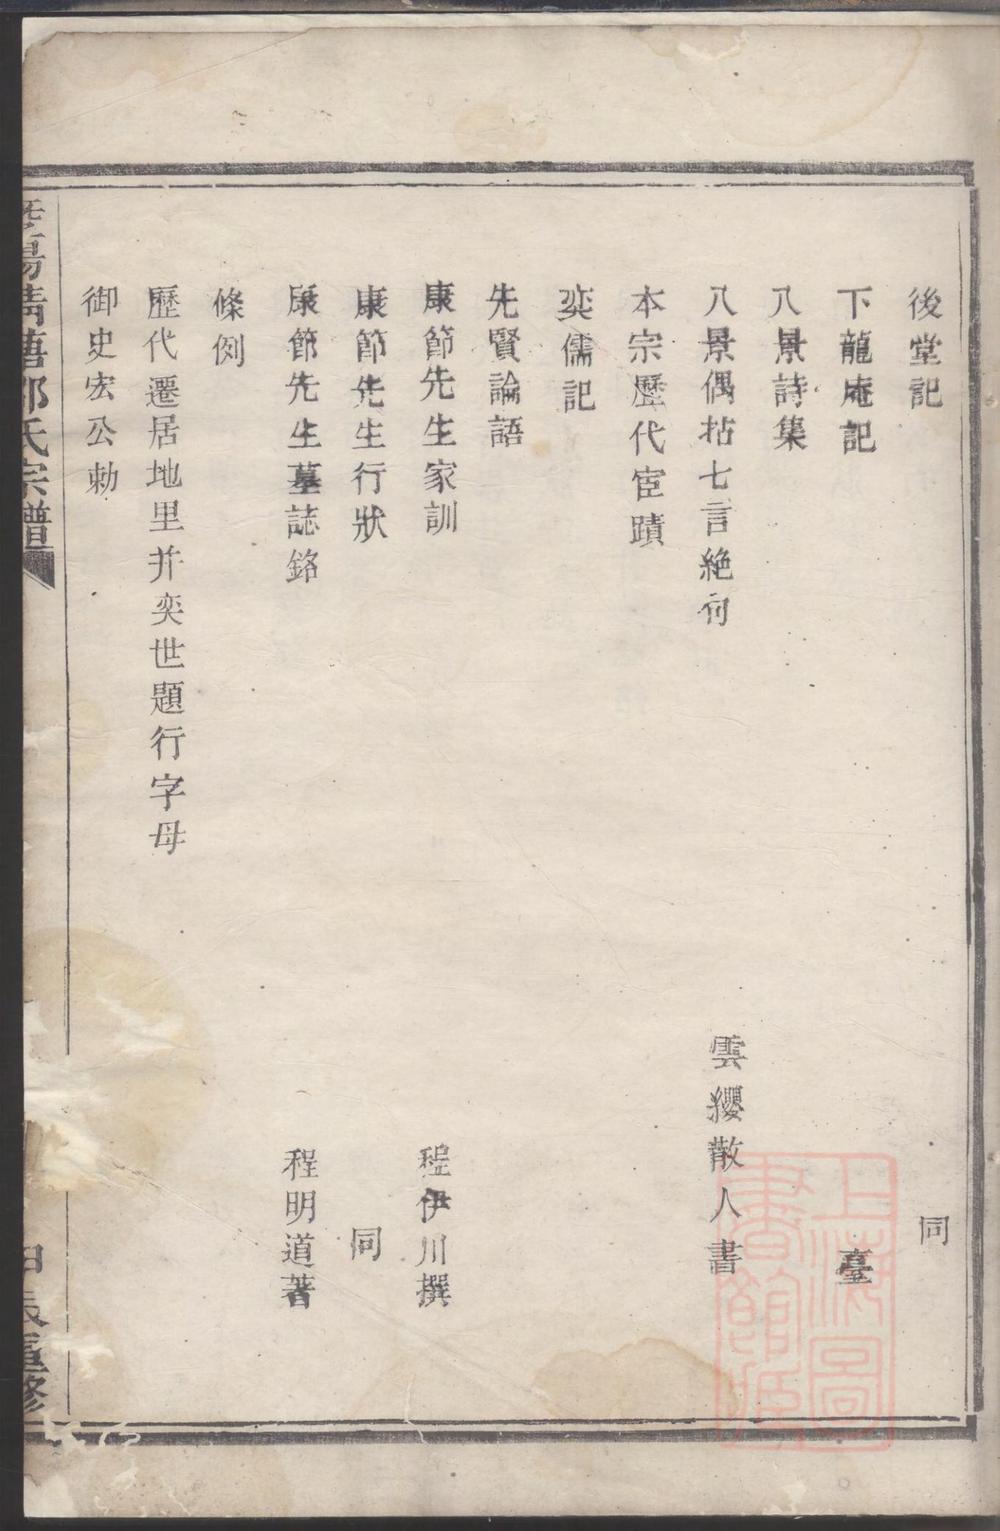 後堂記 同
下龍庵記 臺
八景詩集
八景偶拈七言絶句 雲纓散人書
本宗歷代宦蹟
奕儒記
先賢論語
康節先生家訓 程伊川撰
康節先生行狀 同
康節先生墓誌銘 程明道著
條例
歷代遷居地里并奕世題行字母
御史宏公勅
暨陽清塘邵氏宗譜
重修
上海圖書館藏